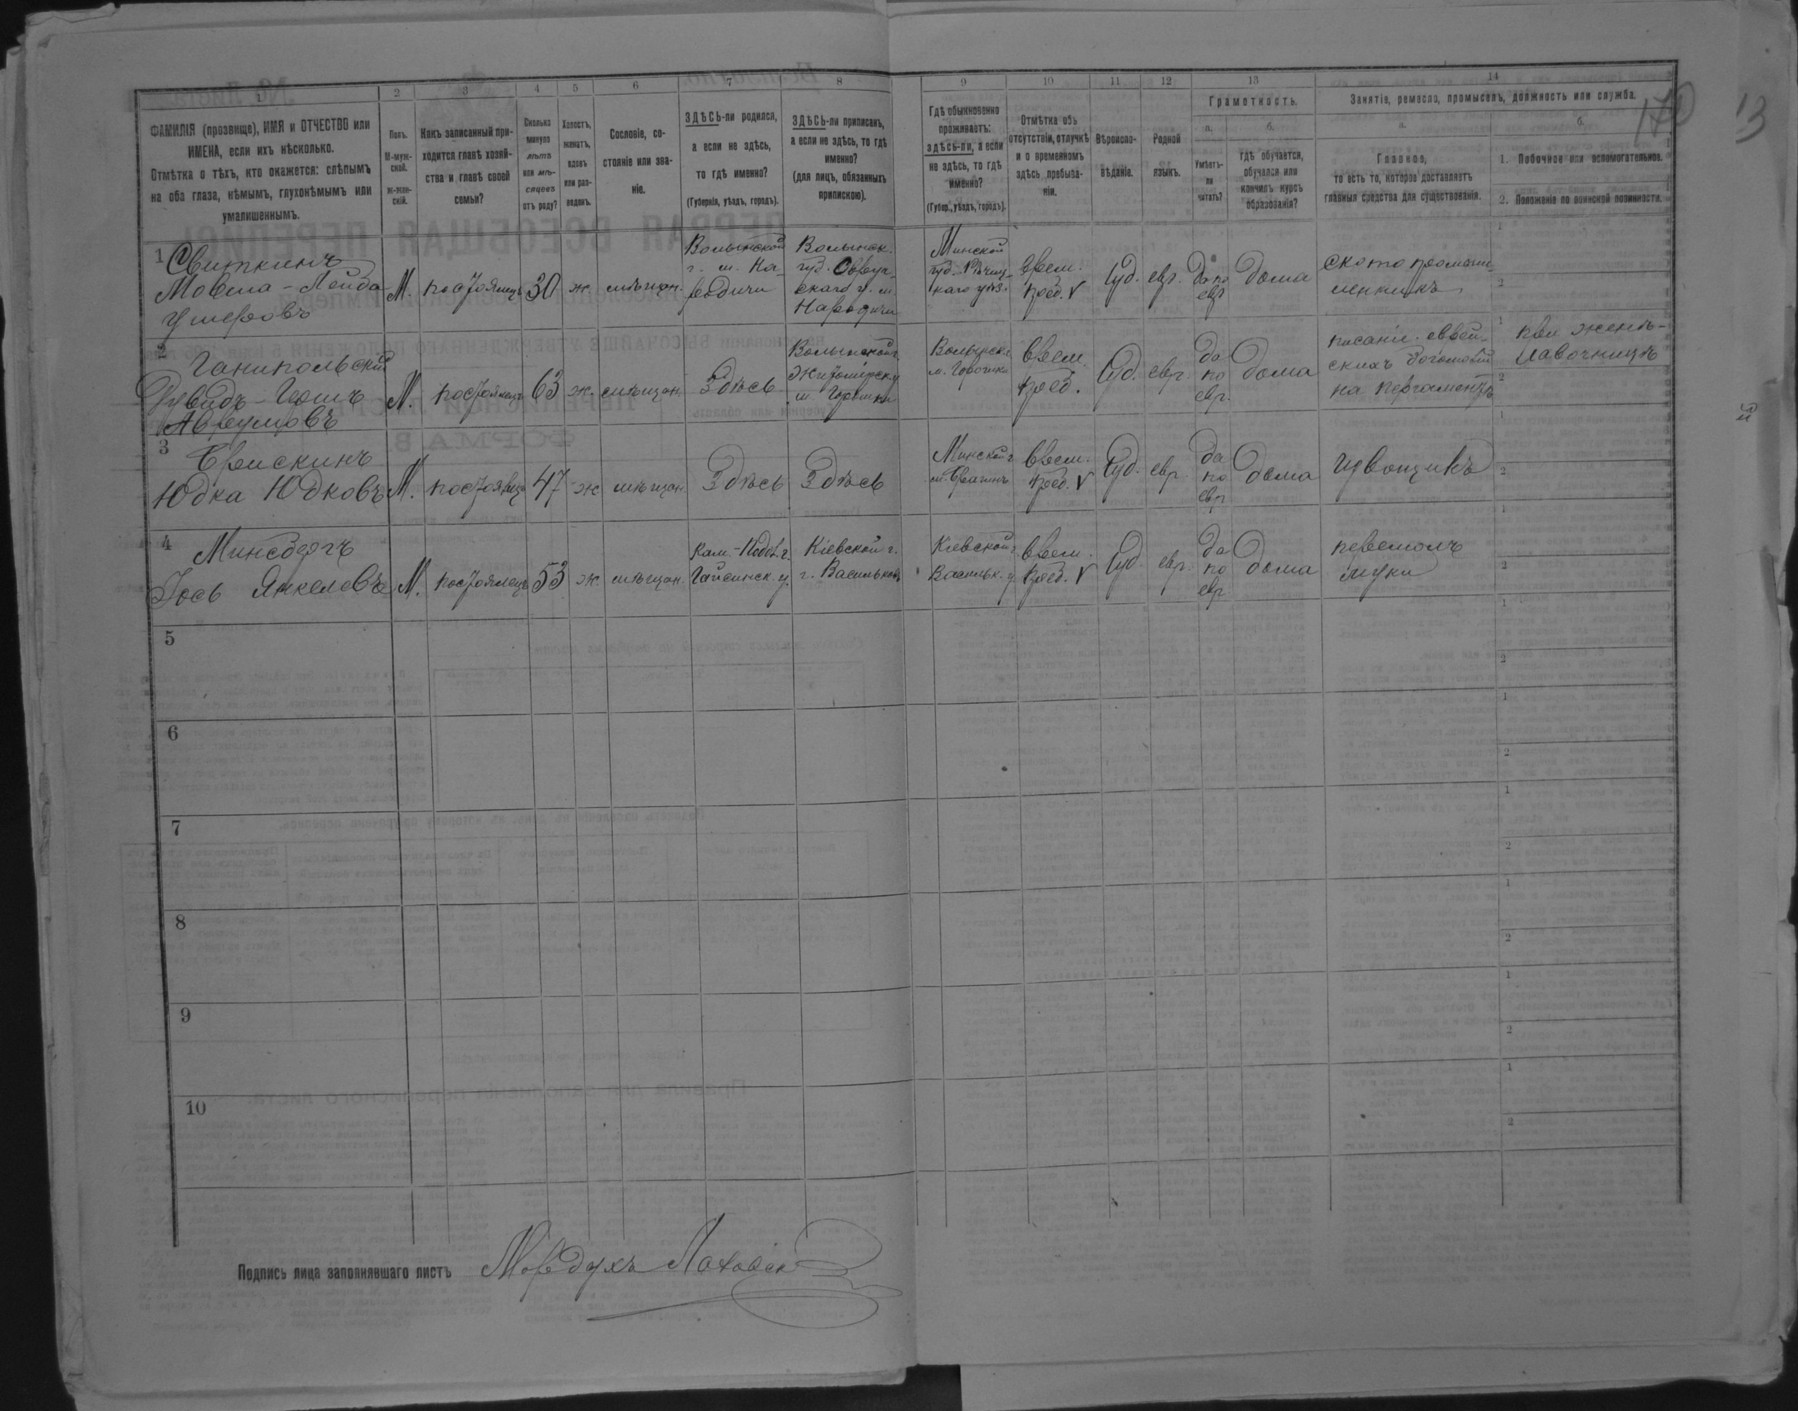 1 2 3 4 5 6 7 8 9 10 11 12 13 14
170 13
ФАМИЛІЯ (прозвище), ИМЯ и ОТЧЕСТВО или
ИМЕНА, если ихъ нѣсколько.
Отмѣтка о тѣхъ, кто окажется: слѣпымъ
на оба глаза, нѣмымъ, глухонѣмымъ или
умалишеннымъ.
Полъ.
М-муж-
ской.
Ж-жен-
скій.
Какъ записанный при-
ходится главѣ хозяй-
ства и главѣ своей
семьи?
Сколько
минуло
лѣтъ
или мѣ-
сяцевъ
отъ роду?
Холостъ,
женатъ,
вдовъ
или раз-
веденъ.
Сословіе, со-
стояніе или зва-
ніе.
ЗДѢСЬ-ли родился,
а если не здѣсь,
то гдѣ именно?
(Губернія, уѣздъ, городъ).
ЗДѢСЬ-ли приписанъ,
а если не здѣсь, то гдѣ
именно?
(для лицъ, обязанныхъ
припискою).
Гдѣ обыкновенно
проживаетъ:
здѣсь-ли, а если
не здѣсь, то гдѣ
именно?
(Губер., уѣздъ, городъ).
Отмѣтка объ
отсутствіи, отлучкѣ
и о временномъ
здѣсь пребыва-
ніи.
Вѣроиспо-
вѣданіе.
Родной
языкъ.
Грамотность.
а.
Умѣетъ-
ли
читать?
б.
гдѣ обучается,
обучался или
кончилъ курсъ
образованія?
Занятіе, ремесло, промыселъ, должность или служба.
а.
Главное,
то есть то, которое доставляетъ
главныя средства для существованія.
б.
1. Побочное или вспомогательное.
2. Положеніе по воинской повинности.
1 Свиткинъ
Мовша-Лейба
Ушеровъ
М. постоялецъ 30 ж. мѣщан.
Волынской
г. м. На-
родичи
Волынск.
губ. Овруч-
скаго у. м.
Народичи
Минской
губ. Рѣчиц-
каго уѣз.
врем.
преб. V
Іуд. евр.
Да по
евр
дома
скотопромыш-
ленникъ
2 Ганипольскій
Дувидъ-Гершъ
Аврумовъ
М. постоялецъ 63 ж. мѣщан. Здѣсь
Волынской г.
Житомірск. у
м. Горошки
Волынск.
м. Горошки
врем.
преб.
Іуд. евр.
да
по
евр.
дома
писаніе еврей-
скихъ
на пергаментѣ
при женѣ-
лавочницѣ
3
Юдка Юдковъ М. постоялецъ 47 ж мѣщан. Здѣсь Здѣсь
Минской г.
врем.
преб. V
Іуд. евр.
да
по
евр
дома извощикъ
4
Іось Янкелевъ М. постоялецъ 53 ж. мѣщан.
Кам.-Под. г.
Гайсинск. у.
Кіевской г.
г. Васильков
Кіевской г.
Васильк. у.
врем.
преб. V
Іуд. евр.
да
по
евр
дома
перемолъ
муки
5
6
7
8
9
10
Подпись лица заполнявшаго листъ Мордухъ